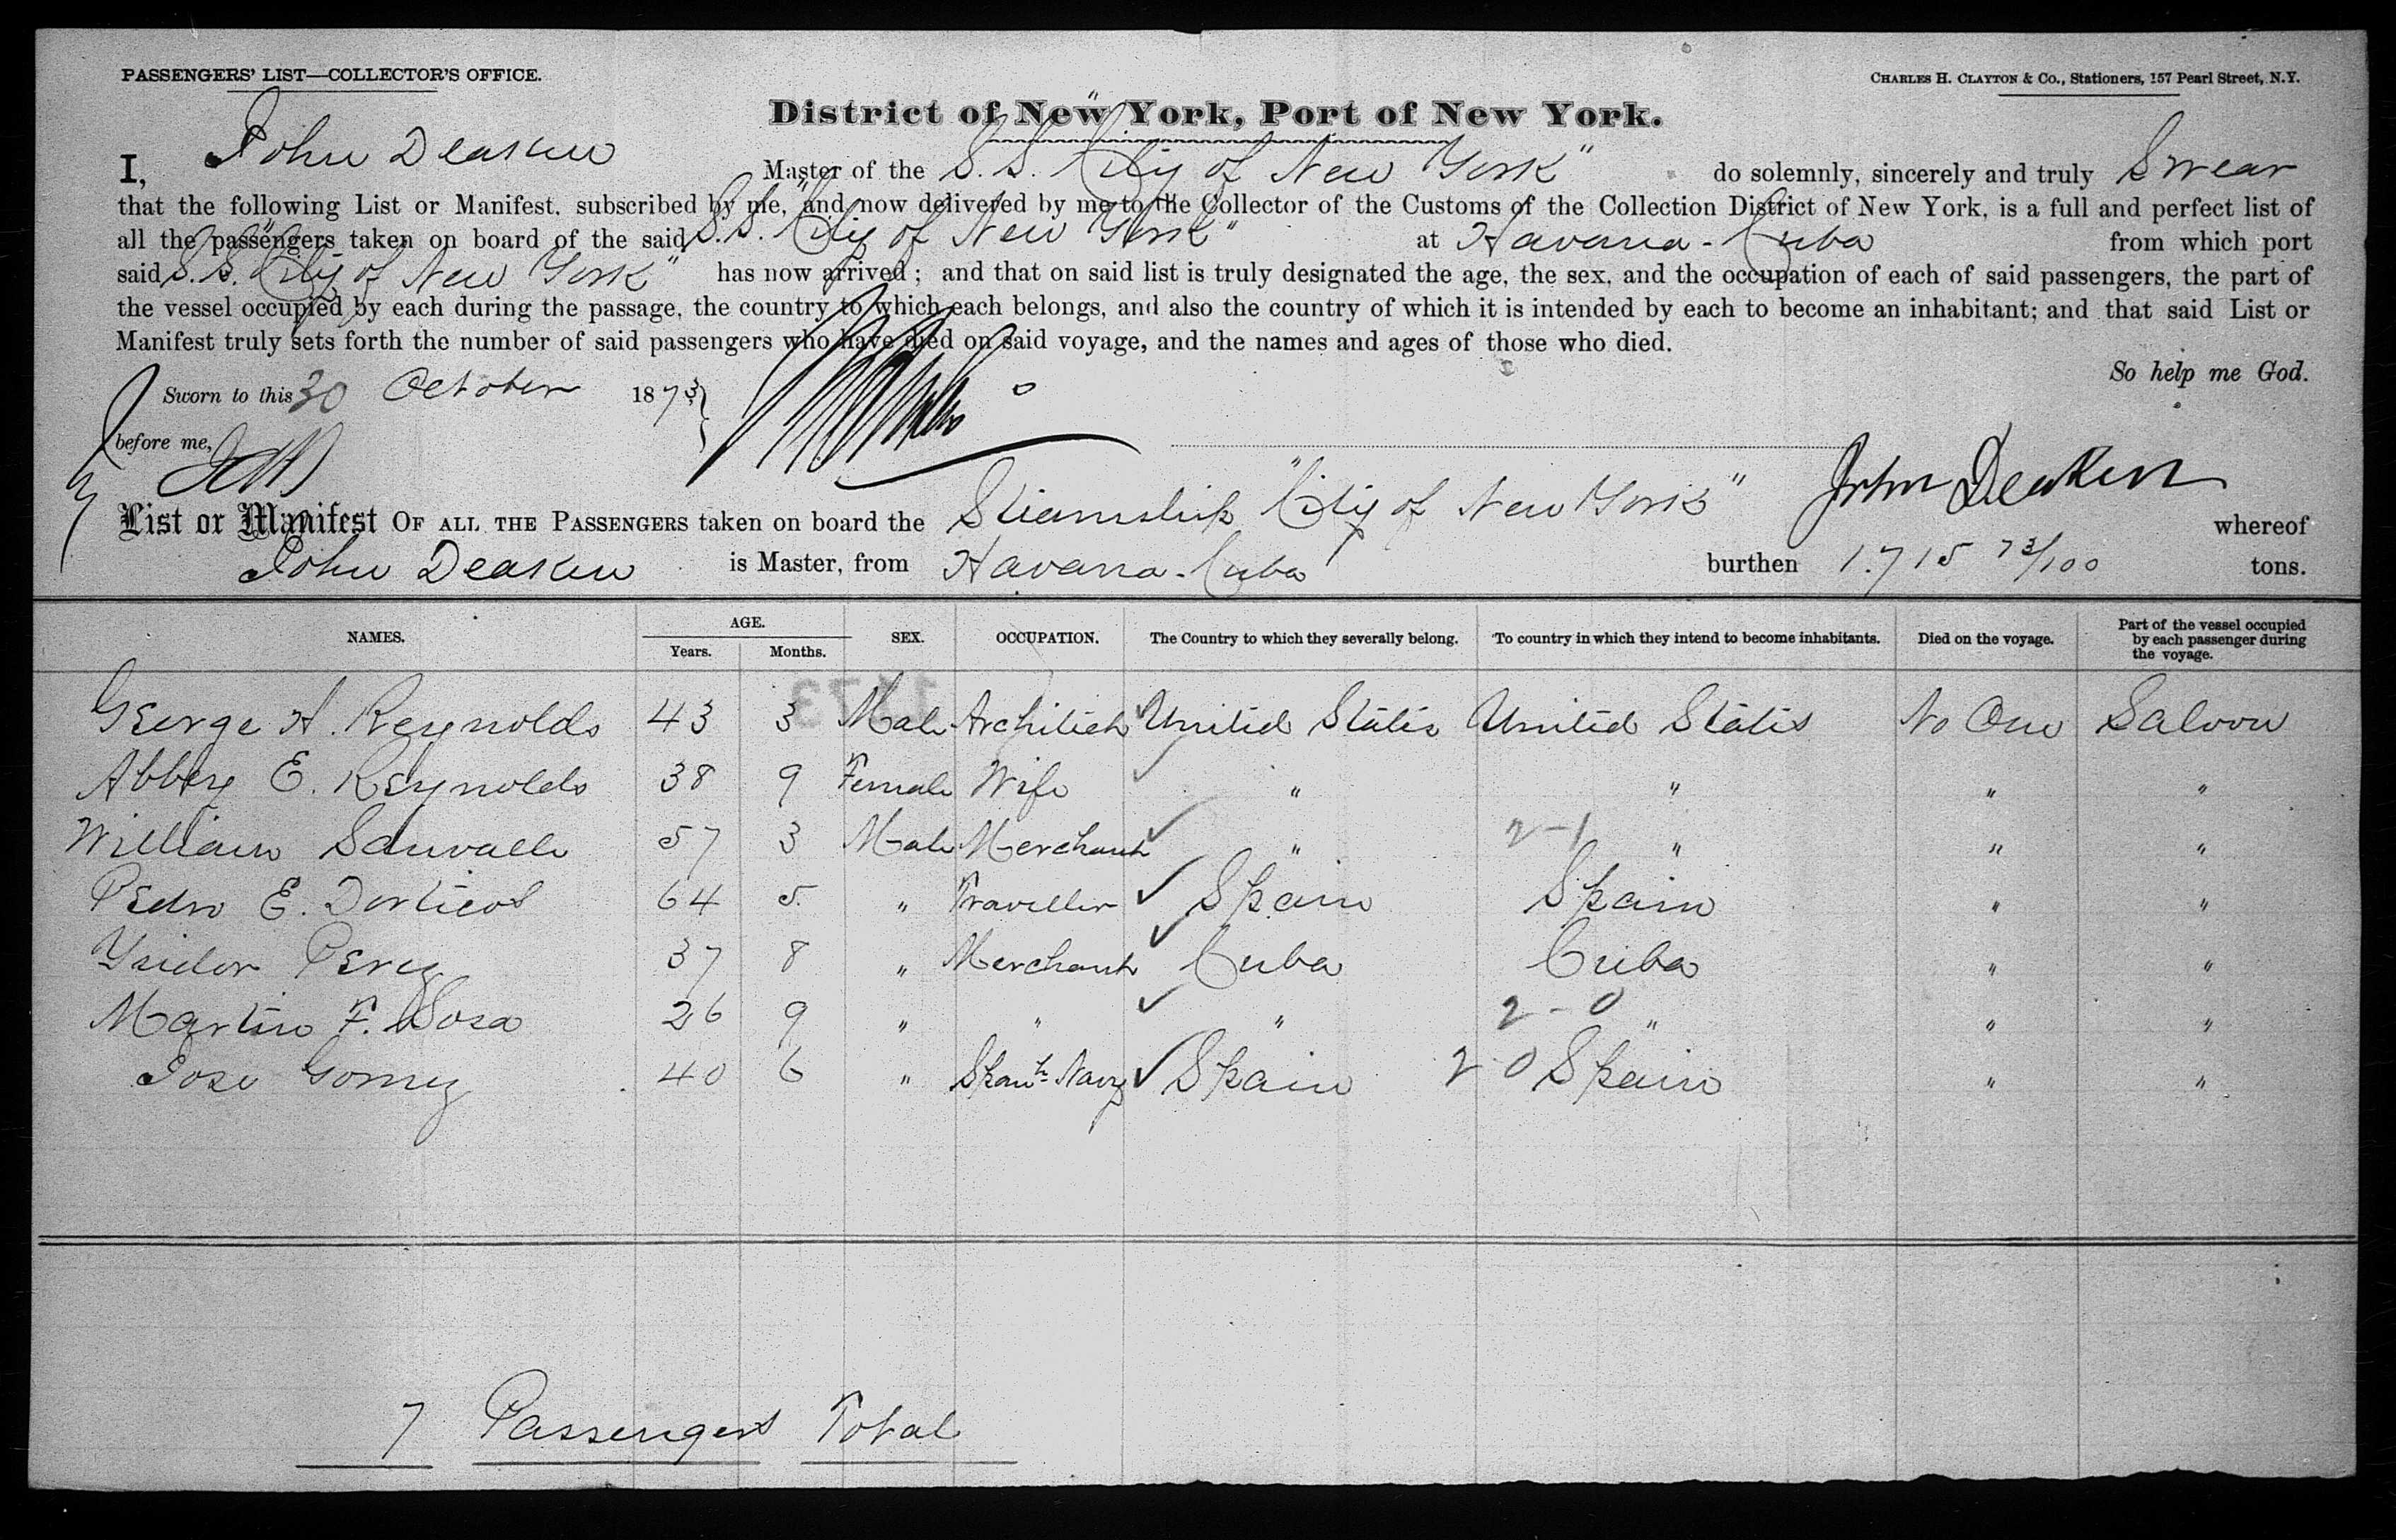 PASSENGERS' LIST—COLLECTOR'S OFFICE.
CHARLES H. CLAYTON & Co., Stationers, 157 Pearl Street, N.Y.
District of New York, Port of New York.
I, John Deaken Master of the S.S. "City of New York" do solemnly, sincerely and truly Swear
that the following List or Manifest, subscribed by me, and now delivered by me to the Collector of the Customs of the Collection District of New York, is a full and perfect list of
all the passengers taken on board of the said S.S. "City of New York" at Havana - Cuba from which port
said S.S. "City of New York" has now arrived; and that on said list is truly designated the age, the sex, and the occupation of each of said passengers, the part of
the vessel occupied by each during the passage, the country to which each belongs, and also the country of which it is intended by each to become an inhabitant; and that said List or
Manifest truly sets forth the number of said passengers who have died on said voyage, and the names and ages of those who died.
So help me God.
Sworn to this 30 October 1873
before me,
John Deaken
List or Manifest OF ALL THE PASSENGERS taken on board the Steamship "City of New York" whereof
John Deaken is Master, from Havana - Cuba burthen 1.715 73/100 tons.
NAMES. AGE. Years. Months. SEX. OCCUPATION. The Country to which they severally belong. To country in which they intend to become inhabitants. Died on the voyage. Part of the vessel occupied by each passenger during the voyage.
George A. Reynolds 43 3 Male Architect United States United States No One Saloon
Abbey E. Reynolds 38 9 Female Wife " " " "
William Sauvalle 57 3 Male Merchant " 2-1 " " "
Pedro E. Dorticos 64 5 " Traveller Spain Spain " "
Ysidor Perez 37 8 " Merchant Cuba Cuba " "
Martin F. Sosa 26 9 " " " 2-0 " " "
Jose Gomez 40 6 " Span'h Navy Spain 2 0 Spain " "
7 Passengers Total